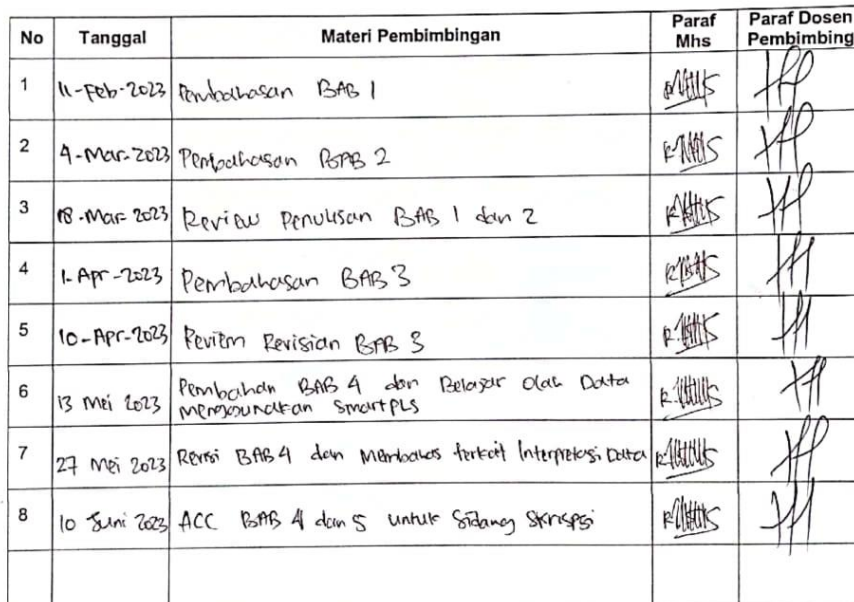 No Tanggal Materi Pembimbingan Paraf Mhs Paraf Dosen Pembimbing
1 11-Feb-2023 Pembahasan BAB 1
2 4-Mar-2023 Pembahasan BAB 2
3 18-Mar-2023 Review Penulisan BAB 1 dan 2
4 1-Apr-2023 Pembahasan BAB 3
5 10-Apr-2023 Review Revisian BAB 3
6 13 Mei 2023 Pembahan BAB 4 dan Belajar Olah Data
menggunakan SmartPLS
7 27 Mei 2023 Revisi BAB 4 dan Membahas terkait Interpretasi Data
8 10 Juni 2023 ACC BAB 4 dan 5 untuk Sidang Skripsi